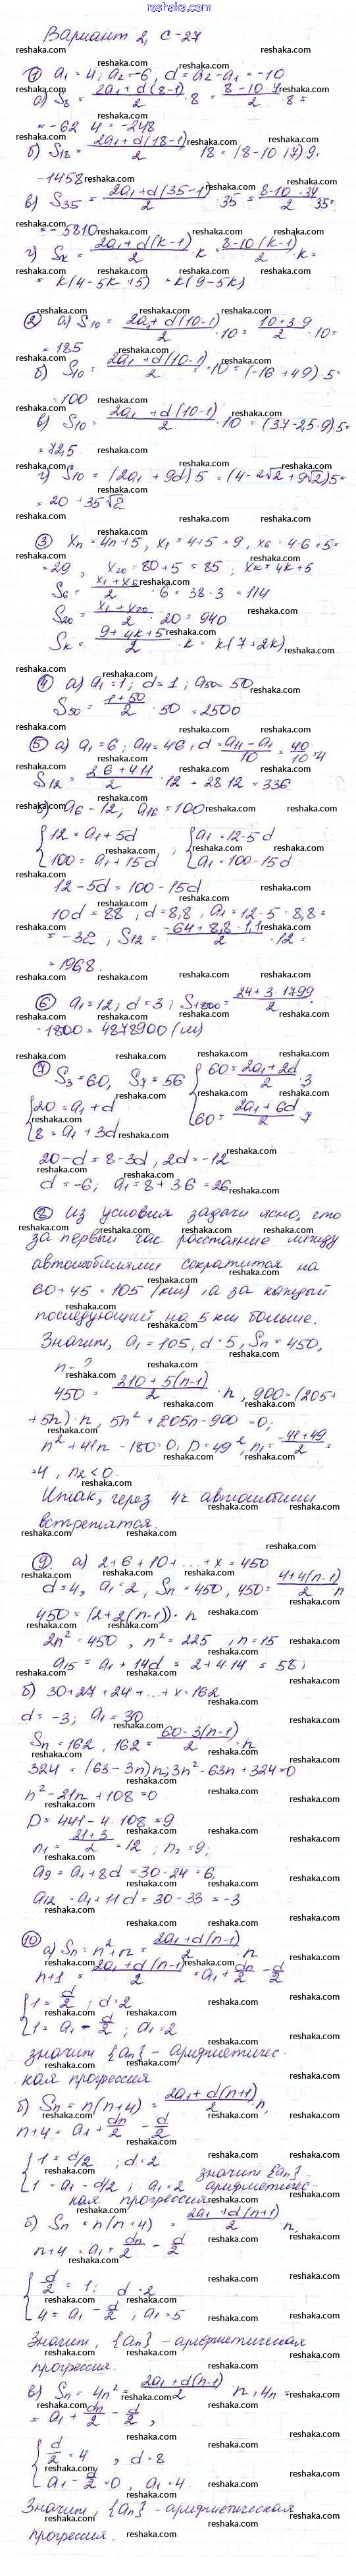 reshaka.com
Вариант 2, С-27
① a₁ = 4; a₂ = -6, d = a₂ - a₁ = -10
а) S₈ = (2a₁ + d(8-1))/2 · 8 = (8 - 10·7)/2 · 8 =
= -62 · 4 = -248
б) S₁₈ = (2a₁ + d(18-1))/2 · 18 = (8 - 10·17)·9 =
-1458
в) S₃₅ = (2a₁ + d(35-1))/2 · 35 = (8 - 10·34)/2 · 35 =
= -5810
г) Sₖ = (2a₁ + d(k-1))/2 · k = (8 - 10(k-1))/2 · k =
= k(4 - 5k + 5) = k(9 - 5k)
② а) S₁₀ = (2a₁ + d(10-1))/2 · 10 = (10 + 3·9)/2 · 10 =
= 185
б) S₁₀ = (2a₁ + d(10-1))/2 · 10 = (-16 + 4·9)·5 =
= 100
в) S₁₀ = (2a₁ + d(10-1))/2 · 10 = (37 - 2,5·9)·5 =
= 72,5
г) S₁₀ = (2a₁ + 9d)·5 = (4 - 2√2 + 9√2)·5 =
= 20 + 35√2
③ xₙ = 4n + 5, x₁ = 4 + 5 = 9, x₆ = 4·6 + 5 =
= 29, x₂₀ = 80 + 5 = 85; xₖ = 4k + 5
S₆ = (x₁ + x₆)/2 · 6 = 38·3 = 114
S₂₀ = (x₁ + x₂₀)/2 · 20 = 940
Sₖ = (9 + 4k + 5)/2 · k = k(7 + 2k)
④ а) a₁ = 1; d = 1; a₅₀ = 50
S₅₀ = (1 + 50)/2 · 50 = 2500
⑤ а) a₁ = 6; a₁₁ = 46, d = (a₁₁ - a₁)/10 = 40/10 = 4
S₁₂ = (2·6 + 4·11)/2 · 12 = 28·12 = 336
б) a₆ = 12; a₁₆ = 100
{12 = a₁ + 5d ; {a₁ = 12 - 5d
{100 = a₁ + 15d {a₁ = 100 - 15d
12 - 5d = 100 - 15d
10d = 88, d = 8,8, a₁ = 12 - 5·8,8 =
= -32, S₁₂ = (-64 + 8,8·11)/2 · 12 =
= 196,8
⑥ a₁ = 12; d = 3; S₁₈₀₀ = (24 + 3·1799)/2 ·
· 1800 = 4878900 (м)
⑦ S₃ = 60, S₇ = 56 {60 = (2a₁ + 2d)/2 · 3
{20 = a₁ + d {60 = (2a₁ + 6d)/2 · 7
{8 = a₁ + 3d
20 - d = 8 - 3d, 2d = -12
d = -6; a₁ = 8 + 3·6 = 26
⑧ Из условия задачи ясно, что
за первый час расстояние между
автомобилями сократится на
60 + 45 = 105 (км), а за каждый
последующий на 5 км больше.
Значит, a₁ = 105, d = 5, Sₙ = 450,
n - ?
450 = (210 + 5(n-1))/2 · n, 900 = (205 +
+ 5n)·n, 5n² + 205n - 900 = 0;
n² + 41n - 180 = 0; D = 49², n₁ = (-41 + 49)/2 =
= 4, n₂ < 0.
Итак, через 4 ч автомобили
встретятся.
⑨ а) 2 + 6 + 10 + ... + x = 450
d = 4, a₁ = 2, Sₙ = 450, 450 = (4 + 4(n-1))/2 · n
450 = (2 + 2(n-1))·n
2n² = 450, n² = 225, n = 15
a₁₅ = a₁ + 14d = 2 + 4·14 = 58;
б) 30 + 27 + 24 + ... + x = 162
d = -3; a₁ = 30
Sₙ = 162, 162 = (60 - 3(n-1))/2 · n
324 = (63 - 3n)n; 3n² - 63n + 324 = 0
n² - 21n + 108 = 0
D = 441 - 4·108 = 9
n₁ = (21 + 3)/2 = 12; n₂ = 9;
a₉ = a₁ + 8d = 30 - 24 = 6,
a₁₂ = a₁ + 11d = 30 - 33 = -3
⑩ а) Sₙ = n² + n = (2a₁ + d(n-1))/2 · n
n + 1 = (2a₁ + d(n-1))/2 = a₁ + dn/2 - d/2
{1 = d/2 ; d = 2
{1 = a₁ - d/2 ; a₁ = 2
значит {aₙ} - арифметичес-
кая прогрессия
б) Sₙ = n(n+4) = (2a₁ + d(n+1))/2 · n,
n + 4 = a₁ + dn/2 - d/2
{1 = d/2 ; d = 2
{1 = a₁ - d/2 ; a₁ = 2 значит {aₙ} -
арифметичес-
кая прогрессия
б) Sₙ = n(n+4) = (2a₁ + d(n+1))/2 · n,
n + 4 = a₁ + dn/2 - d/2
{d/2 = 1; d = 2
{4 = a₁ - d/2 ; a₁ = 5
Значит, {aₙ} - арифметическая
прогрессия.
в) Sₙ = 4n² = (2a₁ + d(n-1))/2 · n, 4n =
= a₁ + dn/2 - d/2,
{d/2 = 4, d = 8
{a₁ - d/2 = 0, a₁ = 4.
Значит, {aₙ} - арифметическая
прогрессия.